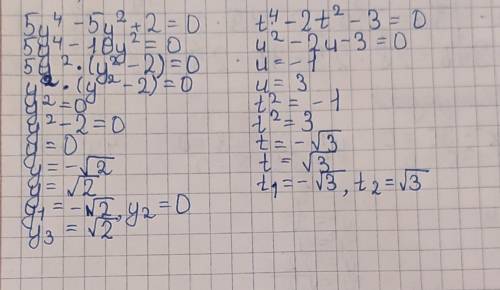 5y⁴ - 5y² + 2 = 0
5y⁴ - 10y² = 0
5y² · (y² - 2) = 0
y² · (y² - 2) = 0
y² = 0
y² - 2 = 0
y = 0
y = -√2
y = √2
y₁ = -√2, y₂ = 0
y₃ = √2
t⁴ - 2t² - 3 = 0
u² - 2u - 3 = 0
u = -1
u = 3
t² = -1
t² = 3
t = -√3
t = √3
t₁ = -√3, t₂ = √3